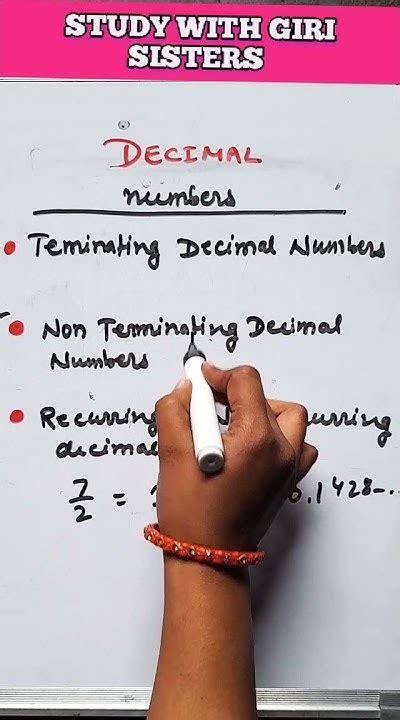 STUDY WITH GIRI
SISTERS
DECIMAL
numbers
Teminating Decimal Numbers
Non Terminating Decimal
Numbers
Recurring urring
decimal
7/2 = 0.1428-..